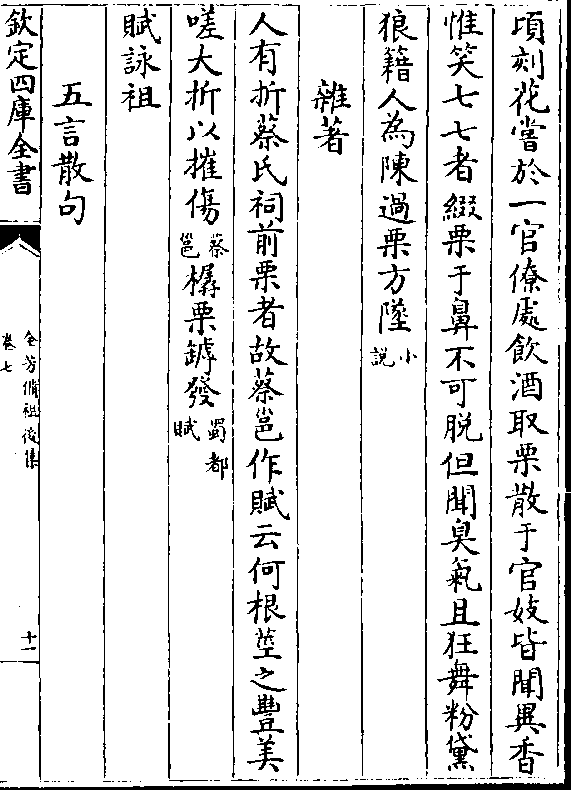 頃刻花嘗於一官僚處飲酒取栗散于官妓皆聞異香
惟笑七七者綴栗于鼻不可脱但聞臭氣且狂舞粉黛
狼籍人為陳過栗方墜小説
雜著
人有折蔡氏祠前栗者故蔡邕作賦云何根莖之豐美
嗟大折以摧傷蔡邕榛栗罅發蜀都賦
賦詠祖
五言散句
欽定四庫全書
全芳備祖後集
卷七
十一